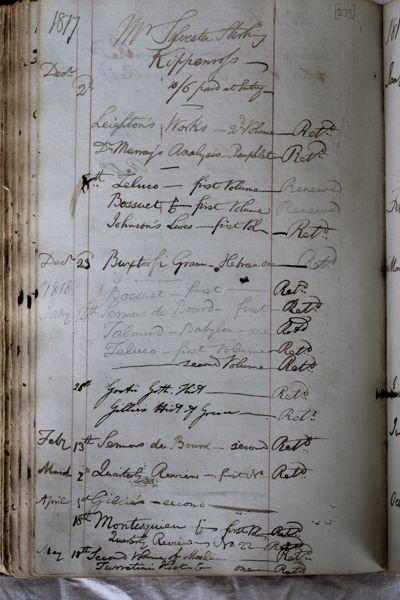 [279]
1817
Mr Silvester Stirling
Kippenross
Decr 2d 10/6 paid at Entry
Leighton's Works - 2d Volume - Retd
Dr Murray's Analysis - Pamphlet - Retd
8th Zeluco - first Volume - Renewed
Bossuet - first Volume Renewed
Johnson's Lives - first Vol - Retd
Decr 23 Buxtorfs Gramr Hebrew one - Retd
1818 Bossuet - first - Retd
Jany 14th Sermons de Bourd - first - Retd
Talmud - Babylon - one Retd
Zeluco - first Volume - Retd
second Volume - Retd
28th Goth Hist - Retd
Gillies Hist of Greece - Retd
Feby 13th Sermons de Bourd - second Retd
March 2d Quarterly Review - first No Retd
April 5th Gillies - second
18th Montesquieu first Retd
Quarterly Review - No. 22 - Retd
May 18th Second Volume of Mosheim Retd
Turretini one - Retd